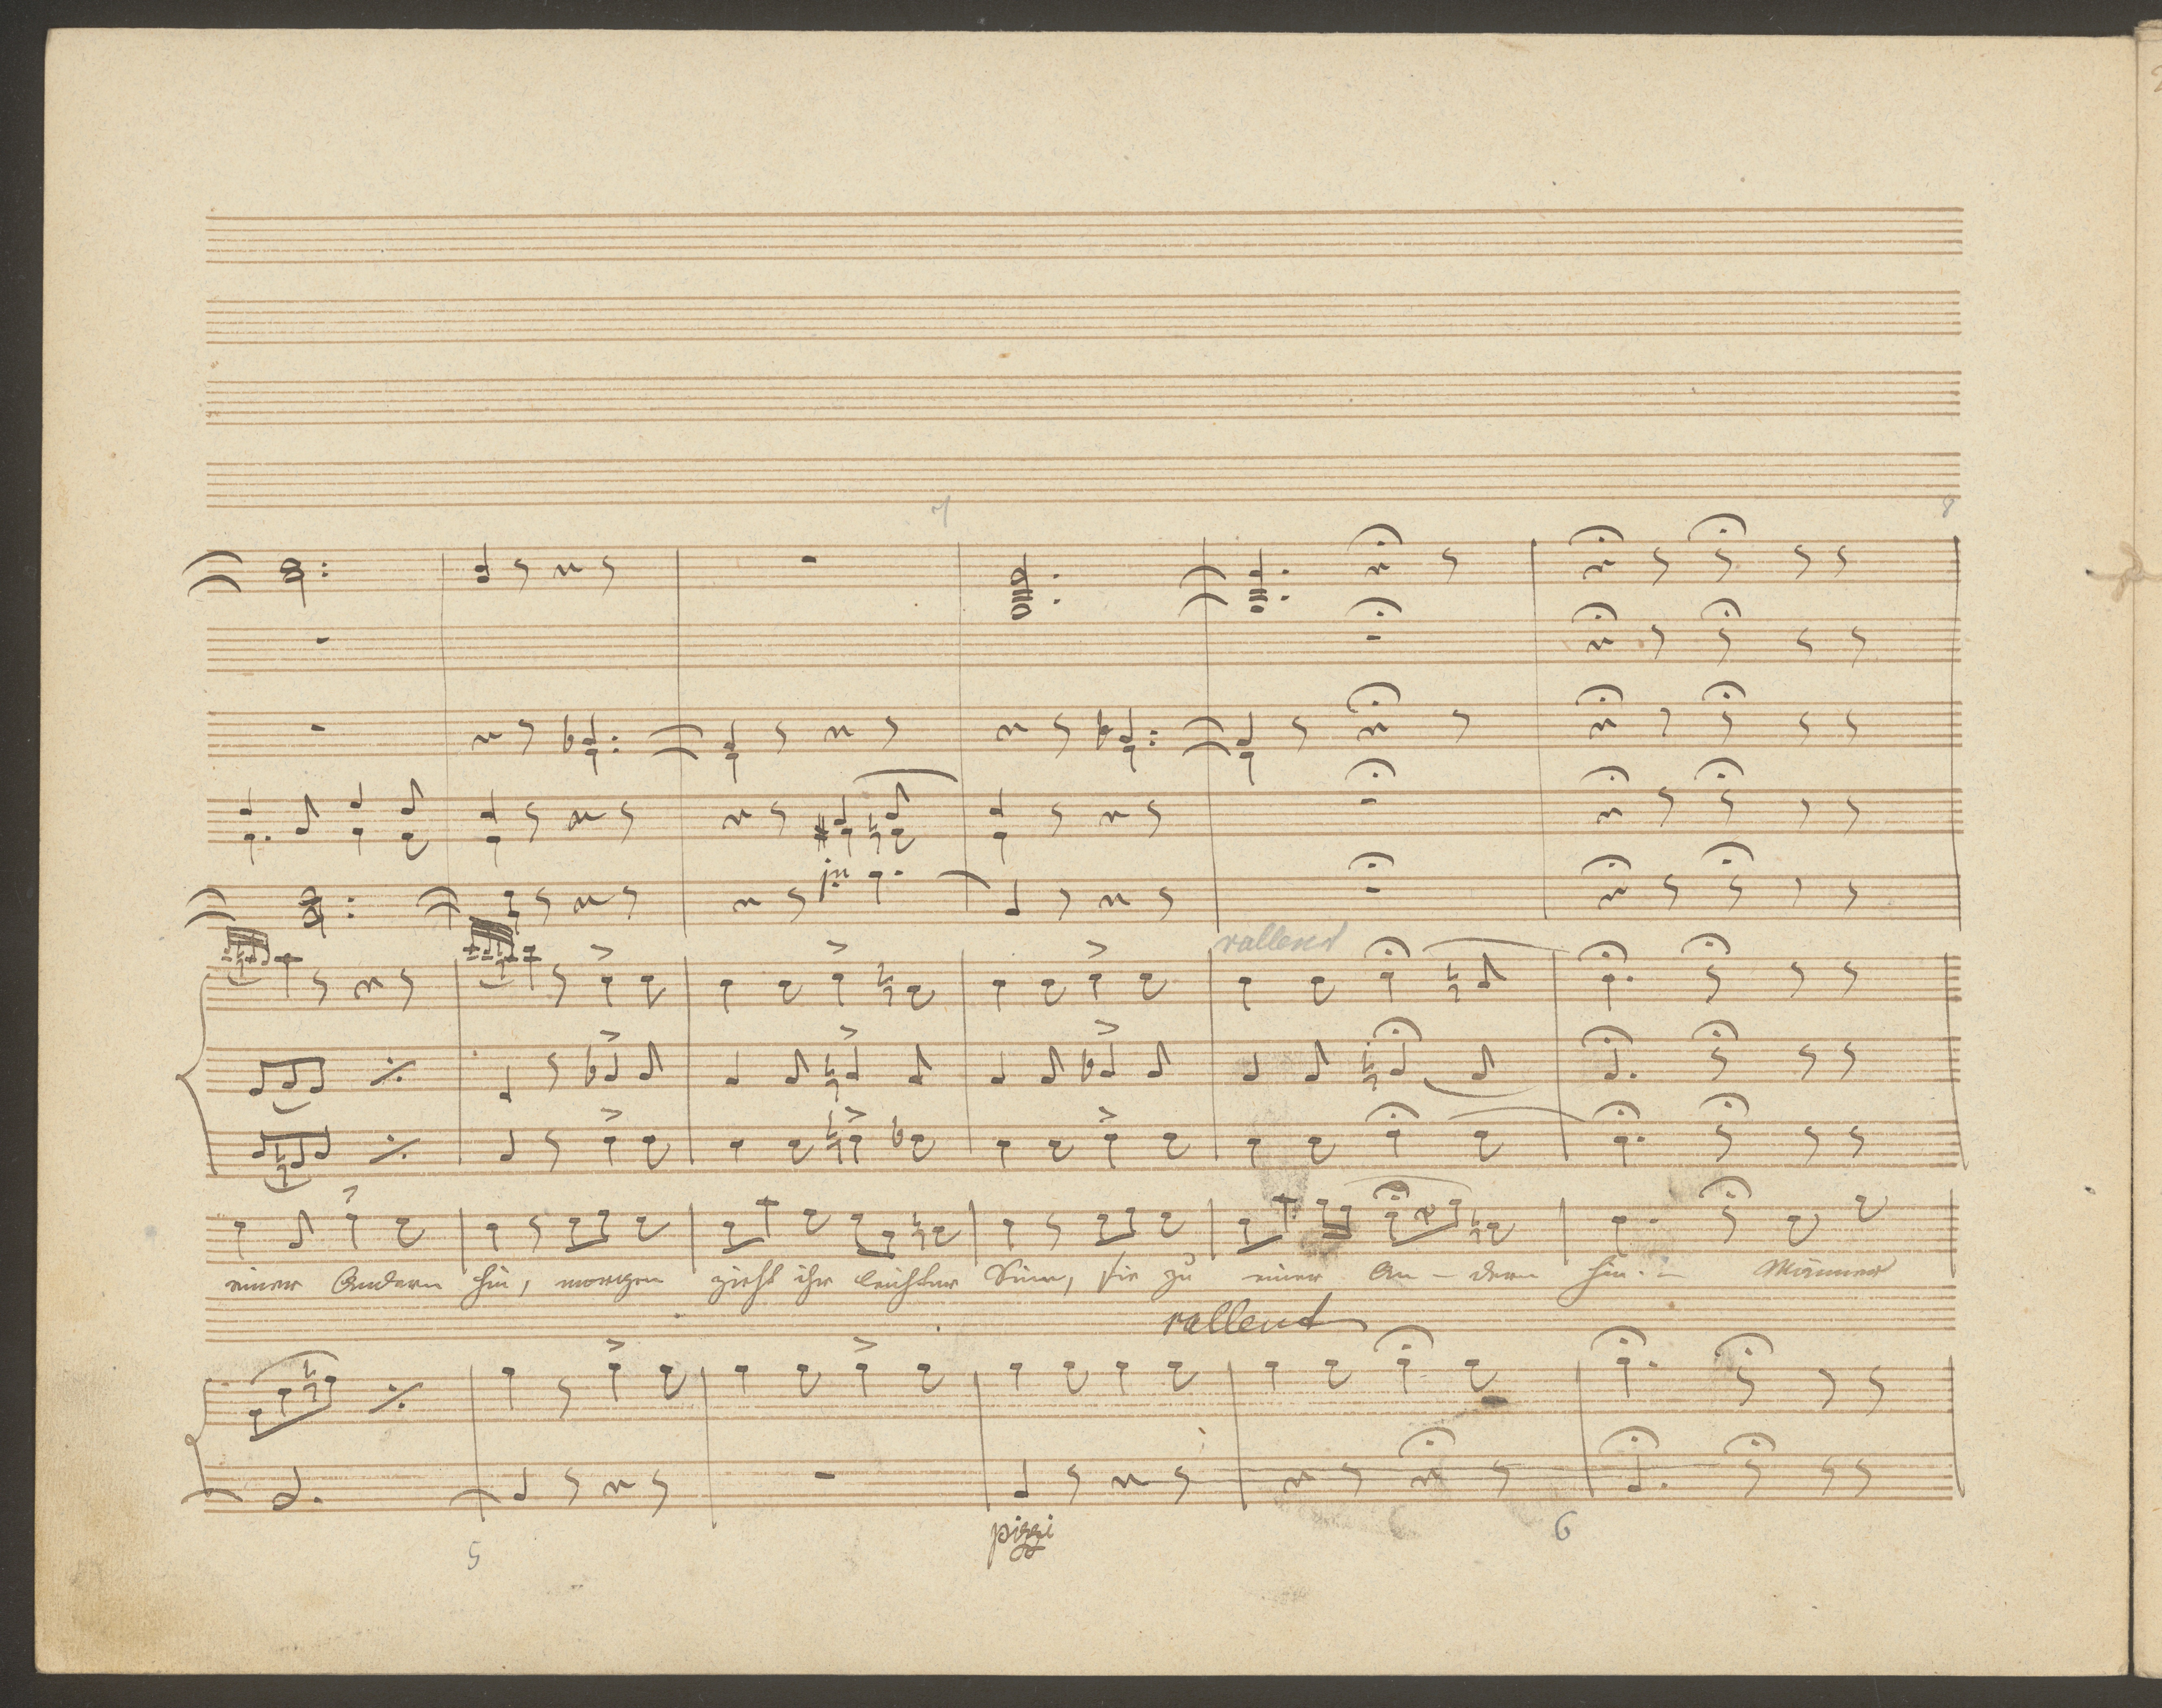 7 8
rallend
einer Andern hin, morgen zieht ihr leichter Sinn, sie zu einer An - dern hin. - Männer
rallent
pizzi
5 6